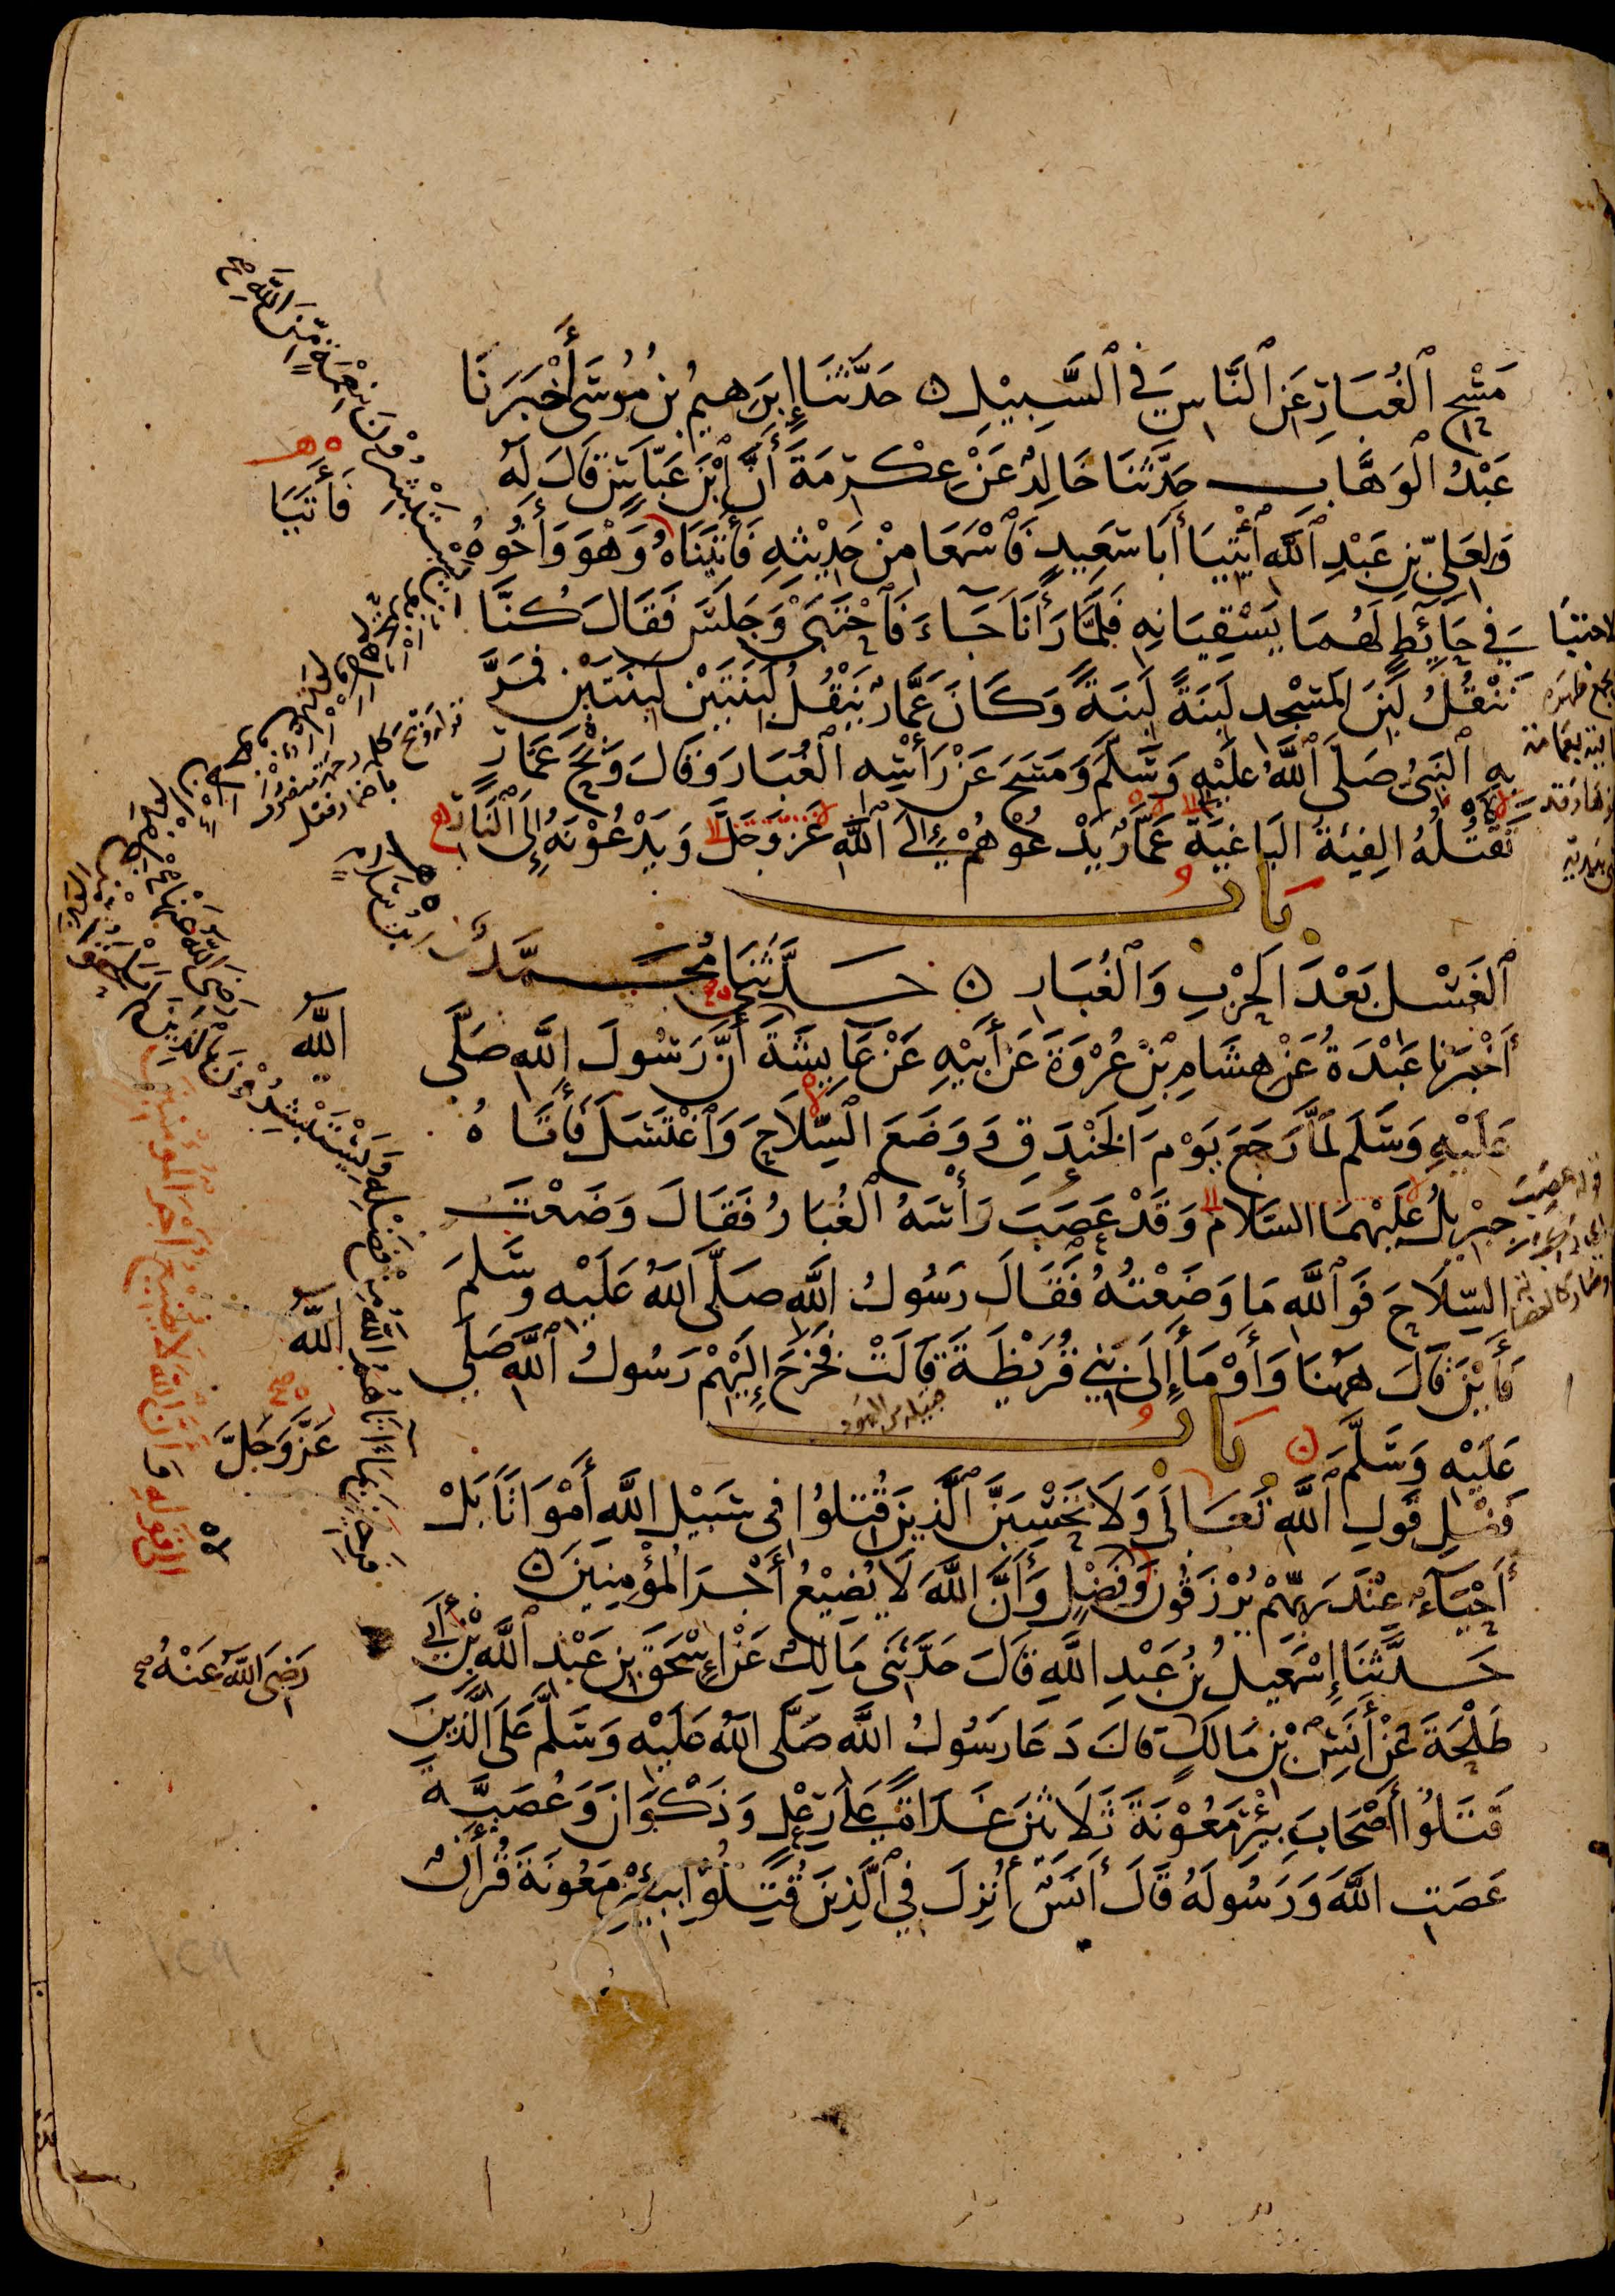 مَسْحِ ٱلْغُبَارِ عَنِ ٱلنَّاسِ فِي ٱلسَّبِيْلِ ۞ حَدَّثَنَا إِبْرَهِيمُ بْنُ مُوسَى أَخْبَرَنَا
عَبْدُ ٱلْوَهَّابِ حَدَّثَنَا خَالِدٌ عَنْ عِكْرِمَةَ أَنَّ ٱبْنَ عَبَّاسٍ قَالَ لَهُ
وَلِعَلِيِّ بْنِ عَبْدِ ٱللَّهِ ٱئْتِيَا أَبَا سَعِيدٍ فَٱسْمَعَا مِنْ حَدِيْثِهِ فَأَتَيْنَاهُ وَهْوَ وَأَخُوهُ
فِي حَائِطٍ لَهُمَا يَسْقِيَانِهِ فَلَمَّا رَأَنَا جَاءَ فَٱحْتَبَى وَجَلَسَ فَقَالَ كُنَّا
نَنْقُلُ لَبِنَ الْمَسْجِدِ لَبِنَةً لَبِنَةً وَكَانَ عَمَّارٌ يَنْقُلُ لَبِنَتَيْنِ لَبِنَتَيْنِ فَمَرَّ
بِهِ ٱلنَّبِيُّ صَلَّى ٱللَّهُ عَلَيْهِ وَسَلَّمَ وَمَسَحَ عَنْ رَأْسِهِ ٱلْغُبَارَ وَقَالَ وَيْحَ عَمَّارٍ
تَقْتُلُهُ الفِئَةُ البَاغِيَةُ عَمَّارٌ يَدْعُوهُمْ إِلَى ٱللَّهِ عَزَّ وَجَلَّ وَيَدْعُوْنَهُ إِلَى ٱلنَّارِ
بَابُ
ٱلْغَسْلِ بَعْدَ الْحَرْبِ وَٱلْغُبَارِ ۞ حَدَّثَنَا مُحَمَّدٌ
أَخْبَرَنَا عَبْدَةُ عَنْ هِشَامِ بْنِ عُرْوَةَ عَنْ أَبِيْهِ عَنْ عَايِشَةَ أَنَّ رَسُولَ اللَّهِ صَلَّى
عَلَيْهِ وَسَلَّمَ لَمَّا رَجَعَ يَوْمَ الْخَنْدَقِ وَوَضَعَ السِّلَاحَ وَٱغْتَسَلَ فَأَتَاهُ
جِبْرِيلُ عَلَيْهِمَا السَّلَامُ وَقَدْ عَصَبَ رَأْسَهُ ٱلْغُبَارُ فَقَالَ وَضَعْتَ
السِّلَاحَ فَوَٱللَّهِ مَا وَضَعْتُهُ فَقَالَ رَسُولُ اللَّهِ صَلَّى اللَّهُ عَلَيْهِ وَسَلَّمَ
فَأَيْنَ قَالَ هَهُنَا وَأَوْمَأَ إِلَى بَنِي قُرَيْظَةَ قَالَتْ فَخَرَجَ إِلَيْهِمْ رَسُولُ ٱللَّهِ صَلَّى
عَلَيْهِ وَسَلَّمَ ۞
بَابُ
فَضْلِ قَولِ ٱللَّهِ تَعَالَى وَلَا تَحْسِبَنَّ ٱلَّذِينَ قُتِلُوا فِي سَبِيْلِ اللَّهِ أَمْوَاتًا بَلْ
أَحْيَآءٌ عِنْدَ رَبِّهِمْ يُرْزَقُونَ وَفَضْلٍ وَأَنَّ اللَّهَ لَا يُضِيْعُ أَجْرَ الْمُؤْمِنِينَ ۞
حَدَّثَنَا إِسْمَعِيلُ بْنُ عَبْدِ اللَّهِ قَالَ حَدَّثَنِي مَالِكٌ عَنْ إِسْحَقَ بْنِ عَبْدِ ٱللَّهِ بْنِ أَبِي
طَلْحَةَ عَنْ أَنَسِ بْنِ مَالِكٍ قَالَ دَعَا رَسُولُ اللَّهِ صَلَّى اللَّهُ عَلَيْهِ وَسَلَّمَ عَلَى الَّذِينَ
قَتَلُوا أَصْحَابَ بِئْرِ مَعُوْنَةَ ثَلَاثِينَ غَدَاةً عَلَى رِعْلٍ وَذَكْوَانَ وَعُصَيَّةَ
عَصَتِ اللَّهَ وَرَسُولَهُ قَالَ أَنَسٌ أُنْزِلَ فِي ٱلَّذِينَ قُتِلُوْا بِبِئْرِ مَعُونَةَ قُرْأَنٌ
فَأَتَيَا
ابْنُ سَلَامٍ
اللَّه
اللَّه
عَزَّ وَجَلَّ
رَضِيَ اللَّهُ عَنْهُ